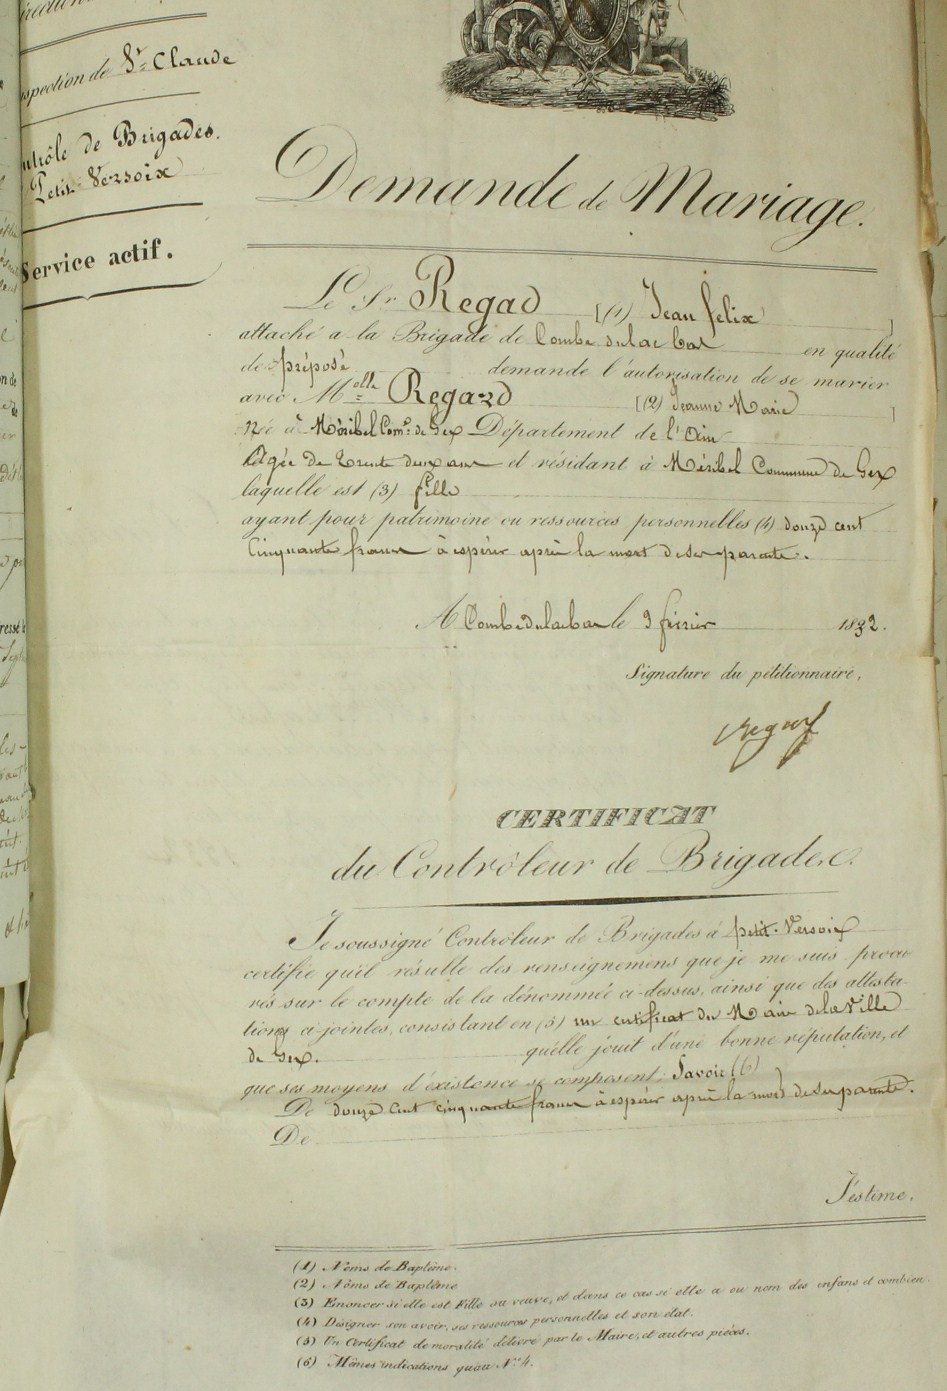 Inspection de St Claude
Contrôle de Brigades.
Petit-Versoix
Service actif.
Demande de Mariage.
Le Sr Regad [(1) Jean felix ]
attaché a la Brigade de Combe dulac bas en qualité
de préposé demande l'autorisation de se marier
avec Melle Regard [(2) Jeanne Marie ]
Née à Méribel Comne de Gex Département de l'Ain
Agée de trente deux ans et résidant à Méribel Commune de Gex
laquelle est (3) fille
ayant pour patrimoine ou ressources personnelles (4) douze cent
cinquante francs à espérer après la mort de ses parents.
A Combe dulac bas le 9 février 1832.
Signature du pétitionnaire,
CERTIFICAT
du Contrôleur de Brigades.
Je soussigné Contrôleur de Brigades à petit-Versoix
certifie qu'il résulte des renseignemens que je me suis procu
rés sur le compte de la dénommée ci-dessus, ainsi que des attesta-
tions ci-jointes, consistant en (5) un certificat du Maire de la Ville
de Gex. qu'elle jouit d'une bonne réputation, et
que ses moyens d'existence se composent, Savoir (6)
De douze cent cinquante francs à espérer après la mort de ses parents.
De
J'estime,
(1) Noms de Baptême.
(2) Noms de Baptême
(3) Enoncer si elle est Fille ou veuve, et dans ce cas si elle a ou non des enfans et combien.
(4) Désigner son avoir, ses ressources personnelles et son état.
(5) Un Certificat de moralité délivré par le Maire, et autres pièces.
(6) Mêmes indications qu'au No 4.